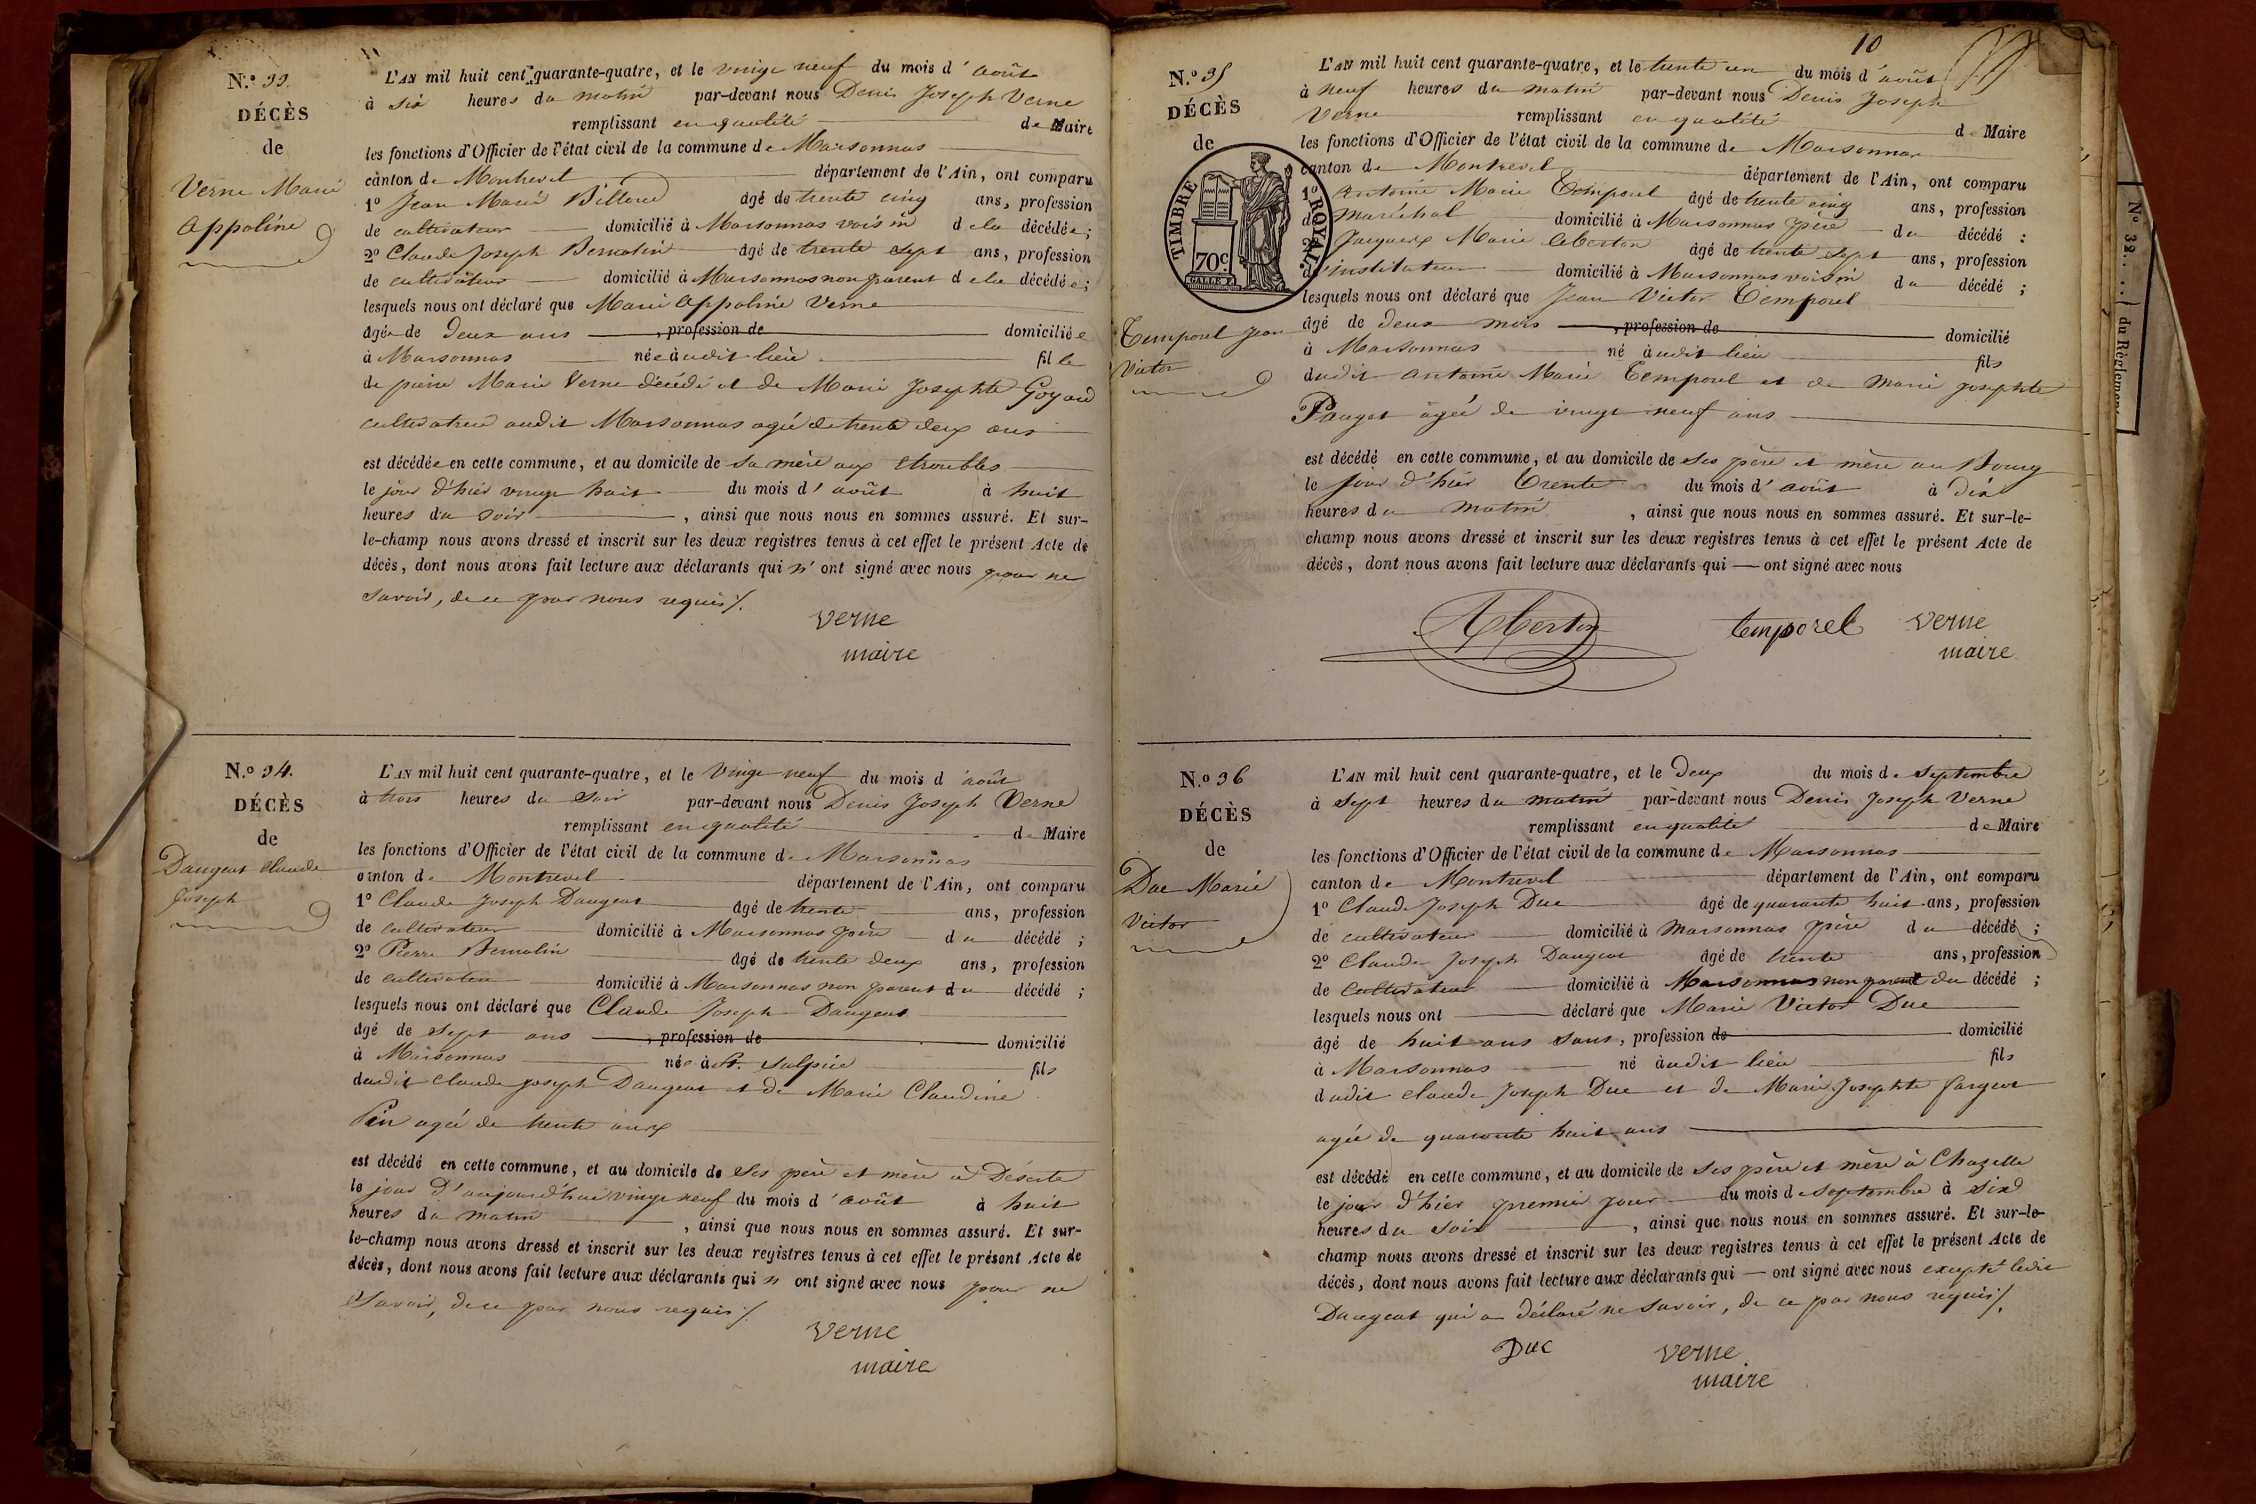 N.º 33.
DÉCÈS
de
Verne Marie
Appoline
L'AN mil huit cent quarante-quatre, et le vingt neuf du mois d'août
à six heures du matin par-devant nous Denis Joseph Verne
remplissant en qualité de Maire
les fonctions d'Officier de l'état civil de la commune de Marsonnas
canton de Montrevel département de l'Ain, ont comparu
1º Jean Marie Billoud âgé de trente cinq ans, profession
de cultivateur domicilié à Marsonnas voisin de la décédée;
2º Claude Joseph Bernolin âgé de trente sept ans, profession
de cultivateur domicilié à Marsonnas non parent de la décédée;
lesquels nous ont déclaré que Marie Appoline Verne
âgée de deux ans , profession de domiciliée
à Marsonnas née audit lieu fille
de pierre Marie Verne décédé et de Marie Josephte Goyard
cultivatrice audit Marsonnas agée de trente deux ans
est décédée en cette commune, et au domicile de sa mère aux Etroubles
le jour d'hier vingt huit du mois d'août à huit
heures du soir , ainsi que nous nous en sommes assuré. Et sur-
le-champ nous avons dressé et inscrit sur les deux registres tenus à cet effet le présent Acte de
décès, dont nous avons fait lecture aux déclarants qui n'ont signé avec nous pour ne
savoir, de ce par nous requis /.
verne
maire
N.º 34.
DÉCÈS
de
Daugeat Claude
Joseph
L'AN mil huit cent quarante-quatre, et le Vingt neuf du mois d'août
à trois heures du soir par-devant nous Denis Joseph Verne
remplissant en qualité de Maire
les fonctions d'Officier de l'état civil de la commune de Marsonnas
canton de Montrevel département de l'Ain, ont comparu
1º Claude Joseph Daugeat âgé de trente ans, profession
de cultivateur domicilié à Marsonnas père du décédé;
2º Pierre Bernolin âgé de trente deux ans, profession
de cultivateur domicilié à Marsonnas non parent du décédé;
lesquels nous ont déclaré que Claude Joseph Daugeat
âgé de sept ans , profession de domicilié
à Marsonnas né à St. Sulpice fils
dudit Claude Joseph Daugeat et de Marie Claudine
Pin agée de trente
est décédé en cette commune, et au domicile de ses père et mère à Déserte
le jour d'aujourd'hui vingt neuf du mois d'août à huit
heures du matin , ainsi que nous nous en sommes assuré. Et sur-
le-champ nous avons dressé et inscrit sur les deux registres tenus à cet effet le présent Acte de
décès, dont nous avons fait lecture aux déclarants qui n ont signé avec nous pour ne
savoir, de ce par nous requis /.
verne
maire
10
N.º 35
DÉCÈS
de
TIMBRE ROYAL.
70c.
Temporel Jean
Victor
L'AN mil huit cent quarante-quatre, et le trente un du mois d'août
à neuf heures du matin par-devant nous Denis Joseph
Verne remplissant en qualité de Maire
les fonctions d'Officier de l'état civil de la commune de Marsonnas
canton de Montrevel département de l'Ain, ont comparu
1º Antoine Marie Temporel âgé de trente cinq ans, profession
de Maréchal domicilié à Marsonnas père du décédé:
2º Jacques Marie Cberton âgé de trente sept ans, profession
d'instituteur domicilié à Marsonnas voisin du décédé;
lesquels nous ont déclaré que Jean Victor Temporel
âgé de deux mois , profession de domicilié
à Marsonnas né audit lieu fils
dudit Antoine Marie Temporel et de Marie Josephte
Pauget âgée de vingt neuf ans
est décédé en cette commune, et au domicile de ses père et mère au Bourg
le jour d'hier Trente du mois d'août à dix
heures du matin , ainsi que nous nous en sommes assuré. Et sur-le-
champ nous avons dressé et inscrit sur les deux registres tenus à cet effet le présent Acte de
décès, dont nous avons fait lecture aux déclarants qui — ont signé avec nous
temporel verne
maire
N.º 36
DÉCÈS
de
Duc Marie
Victor
L'AN mil huit cent quarante-quatre, et le deux du mois de septembre
à sept heures du matin par-devant nous Denis Joseph Verne
remplissant en qualité de Maire
les fonctions d'Officier de l'état civil de la commune de Marsonnas
canton de Montrevel département de l'Ain, ont comparu
1º Claude Joseph Duc âgé de quarante huit ans, profession
de cultivateur domicilié à Marsonnas père du décédé;
2º Claude Joseph Daugeat âgé de trente ans, profession
de cultivateur domicilié à Marsonnas non parent du décédé;
lesquels nous ont déclaré que Marie Victor Duc
âgé de huit ans sans, profession de domicilié
à Marsonnas né audit lieu fils
dudit Claude Joseph Duc et de Marie Josephte fargeot
agée de quarante huit ans
est décédé en cette commune, et au domicile de ses père et mère à Chazelle
le jour d'hier premier jour du mois de septembre à six
heures du soir , ainsi que nous nous en sommes assuré. Et sur-le-
champ nous avons dressé et inscrit sur les deux registres tenus à cet effet le présent Acte de
décès, dont nous avons fait lecture aux déclarants qui — ont signé avec nous excepté ledit
Daugeat qui a déclaré ne savoir, de ce par nous requis /.
Duc verne
maire
Nº 32.... du Règlement